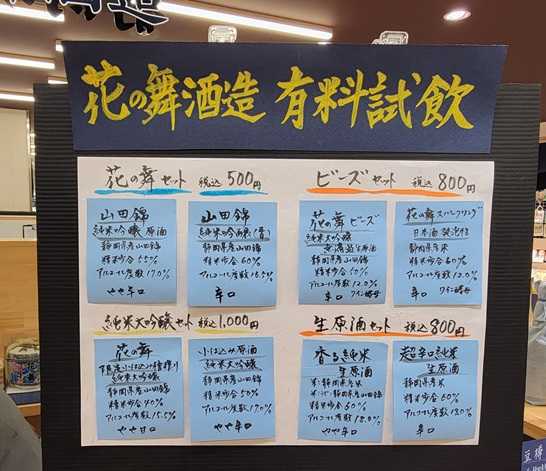 花の舞酒造 有料試飲
花の舞セット 税込 500円
山田錦
純米吟醸 原酒
静岡県産山田錦
精米歩合55%
アルコール度数17.0%
やや辛口
山田錦
静岡県産山田錦
辛口
ビーズセット 税込 800円
花の舞 ビーズ
純米大吟醸
静岡県産山田錦
精米歩合50%
アルコール度数12.0%
辛口 ワイン酵母
花の舞 スパークリング
日本酒 発泡性
静岡県産米
精米歩合60%
アルコール度数12.0%
辛口 ワイン酵母
純米大吟醸セット 税込 1,000円
花の舞
純米大吟醸
静岡県産山田錦
精米歩合40%
アルコール度数15.5%
やや甘口
しぼっ込み原酒
純米大吟醸
静岡県産山田錦
精米歩合50%
アルコール度数17.0%
やや辛口
生原酒セット 税込 800円
香る純米
生原酒
精米歩合60%
アルコール度数18.0%
やや辛口
超辛口純米
生原酒
静岡県産米
精米歩合60%
アルコール度数18.0%
辛口